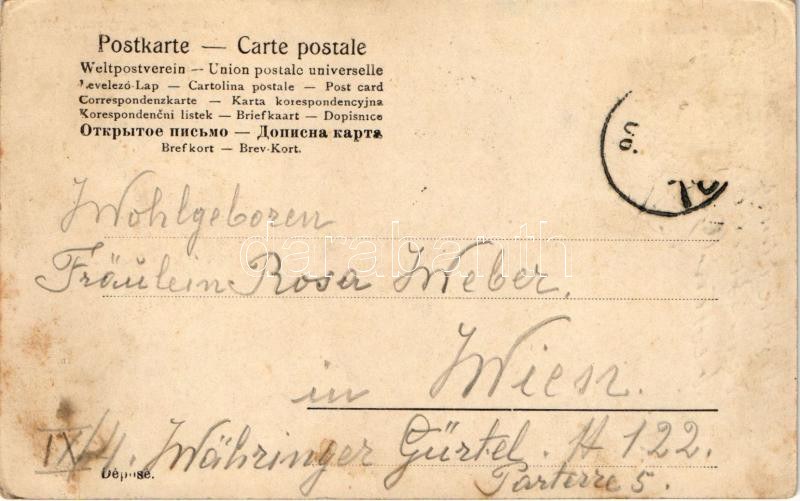 Postkarte — Carte postale
Weltpostverein — Union postale universelle
Levelező-Lap — Cartolina postale — Post card
Correspondenzkarte — Karta korespondencyjna
Korespondenční listek — Briefkaart — Dopisnice
Открытое письмо — Дописна карта
Brefkort — Brev-Kort.
Wohlgeboren
darabanth
Fräulein Rosa Weber,
in Wien.
IX/4. Währinger Gürtel. H 122.
Déposé.
Parterre 5.